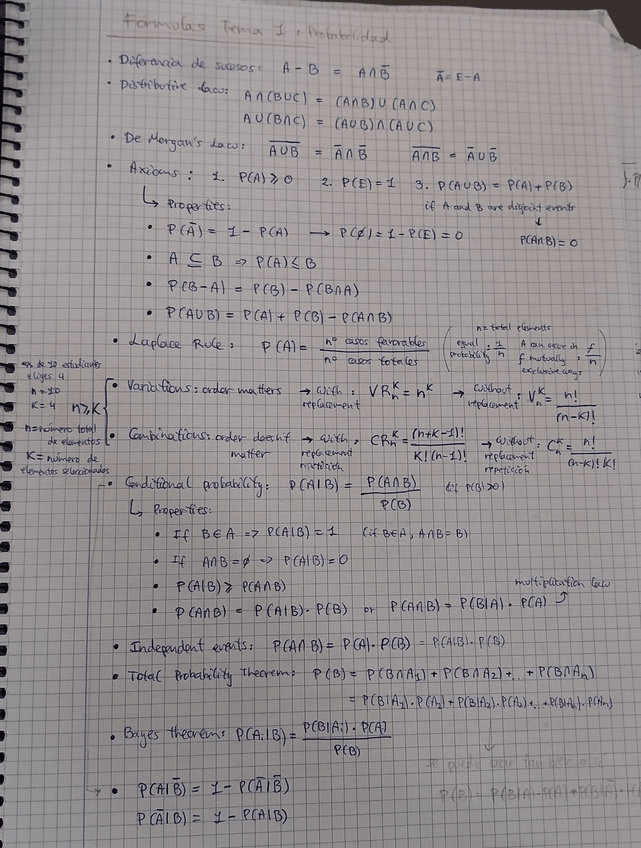 Formulas Tema 1: Probabilidad
• Diferencia de sucesos: A - B = A∩B̄   Ā = E - A
• Distributive law: A∩(B∪C) = (A∩B)∪(A∩C)
A∪(B∩C) = (A∪B)∩(A∪C)
• De Morgan's law: \overline{A∪B} = Ā∩B̄   \overline{A∩B} = Ā∪B̄
• Axioms: 1. P(A) ≥ 0   2. P(E) = 1   3. P(A∪B) = P(A) + P(B)
if A and B are disjoint events
↓
P(A∩B) = 0
↳ Properties:
• P(Ā) = 1 - P(A) → P(∅) = 1 - P(E) = 0
• A ⊆ B ⇒ P(A) ≤ B
• P(B-A) = P(B) - P(B∩A)
• P(A∪B) = P(A) + P(B) - P(A∩B)
• Laplace Rule: P(A) = nº casos favorables / nº casos totales
n = total elements
equal probability: 1/n
A can occur in f
f mutually exclusive ways
f/n
ex de 10 estudiantes
eliges 4
n = 10
K = 4
n ≥ K
n = número total
de elementos
K = número de
elementos seleccionados
• Variations: order matters → with replacement: VR_n^K = n^K → without replacement: V_n^K = n! / (n-K)!
• Combinations: order doesn't matter → with replacement repetición: CR_n^K = (n+K-1)! / K!(n-1)! → without replacement repetición: C_n^K = n! / (n-K)! K!
• Conditional probability: P(A|B) = P(A∩B) / P(B)   (if P(B)>0)
↳ Properties:
• If B∈A ⇒ P(A|B) = 1   (if B∈A, A∩B = B)
• If A∩B = ∅ ⇒ P(A|B) = 0
• P(A|B) ≥ P(A∩B)
multiplication law
• P(A∩B) = P(A|B) · P(B) or P(A∩B) = P(B|A) · P(A)
• Independent events: P(A∩B) = P(A) · P(B) = P(A|B) · P(B)
• Total Probability Theorem: P(B) = P(B∩A₁) + P(B∩A₂) + ... + P(B∩Aₙ)
= P(B|A₁)·P(A₁) + P(B|A₂)·P(A₂) + ... + P(B|Aₙ)·P(Aₙ)
• Bayes theorem: P(Aᵢ|B) = P(B|Aᵢ) · P(A) / P(B)
• P(A|B̄) = 1 - P(Ā|B̄)
P(Ā|B) = 1 - P(A|B)
se puede
P(B) = P(B|A)·P(A) + P(B|Ā)